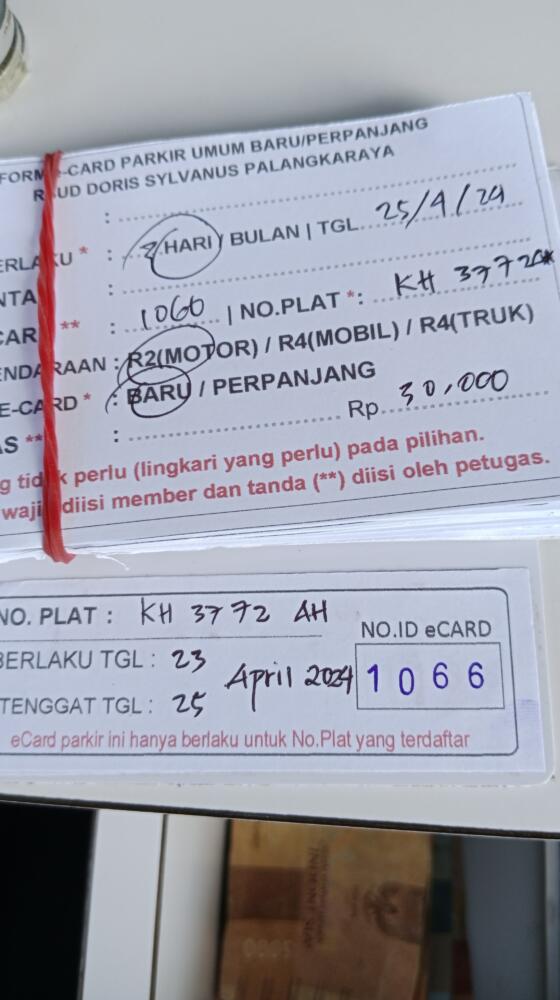 FORM E-CARD PARKIR UMUM BARU/PERPANJANG
RSUD DORIS SYLVANUS PALANGKARAYA
:
ERLAKU * : 2 HARI / BULAN | TGL 25/4/24
NTA :
CARD ** : 1066 | NO.PLAT *: KH 3772
ENDARAAN : R2(MOTOR) / R4(MOBIL) / R4(TRUK)
E-CARD * : BARU / PERPANJANG
AS ** : Rp. 30,000
g tidak perlu (lingkari yang perlu) pada pilihan.
wajib diisi member dan tanda (**) diisi oleh petugas.
NO. PLAT : KH 3772 AH
NO.ID eCARD
BERLAKU TGL : 23
April 2024
1066
TENGGAT TGL : 25
eCard parkir ini hanya berlaku untuk No.Plat yang terdaftar